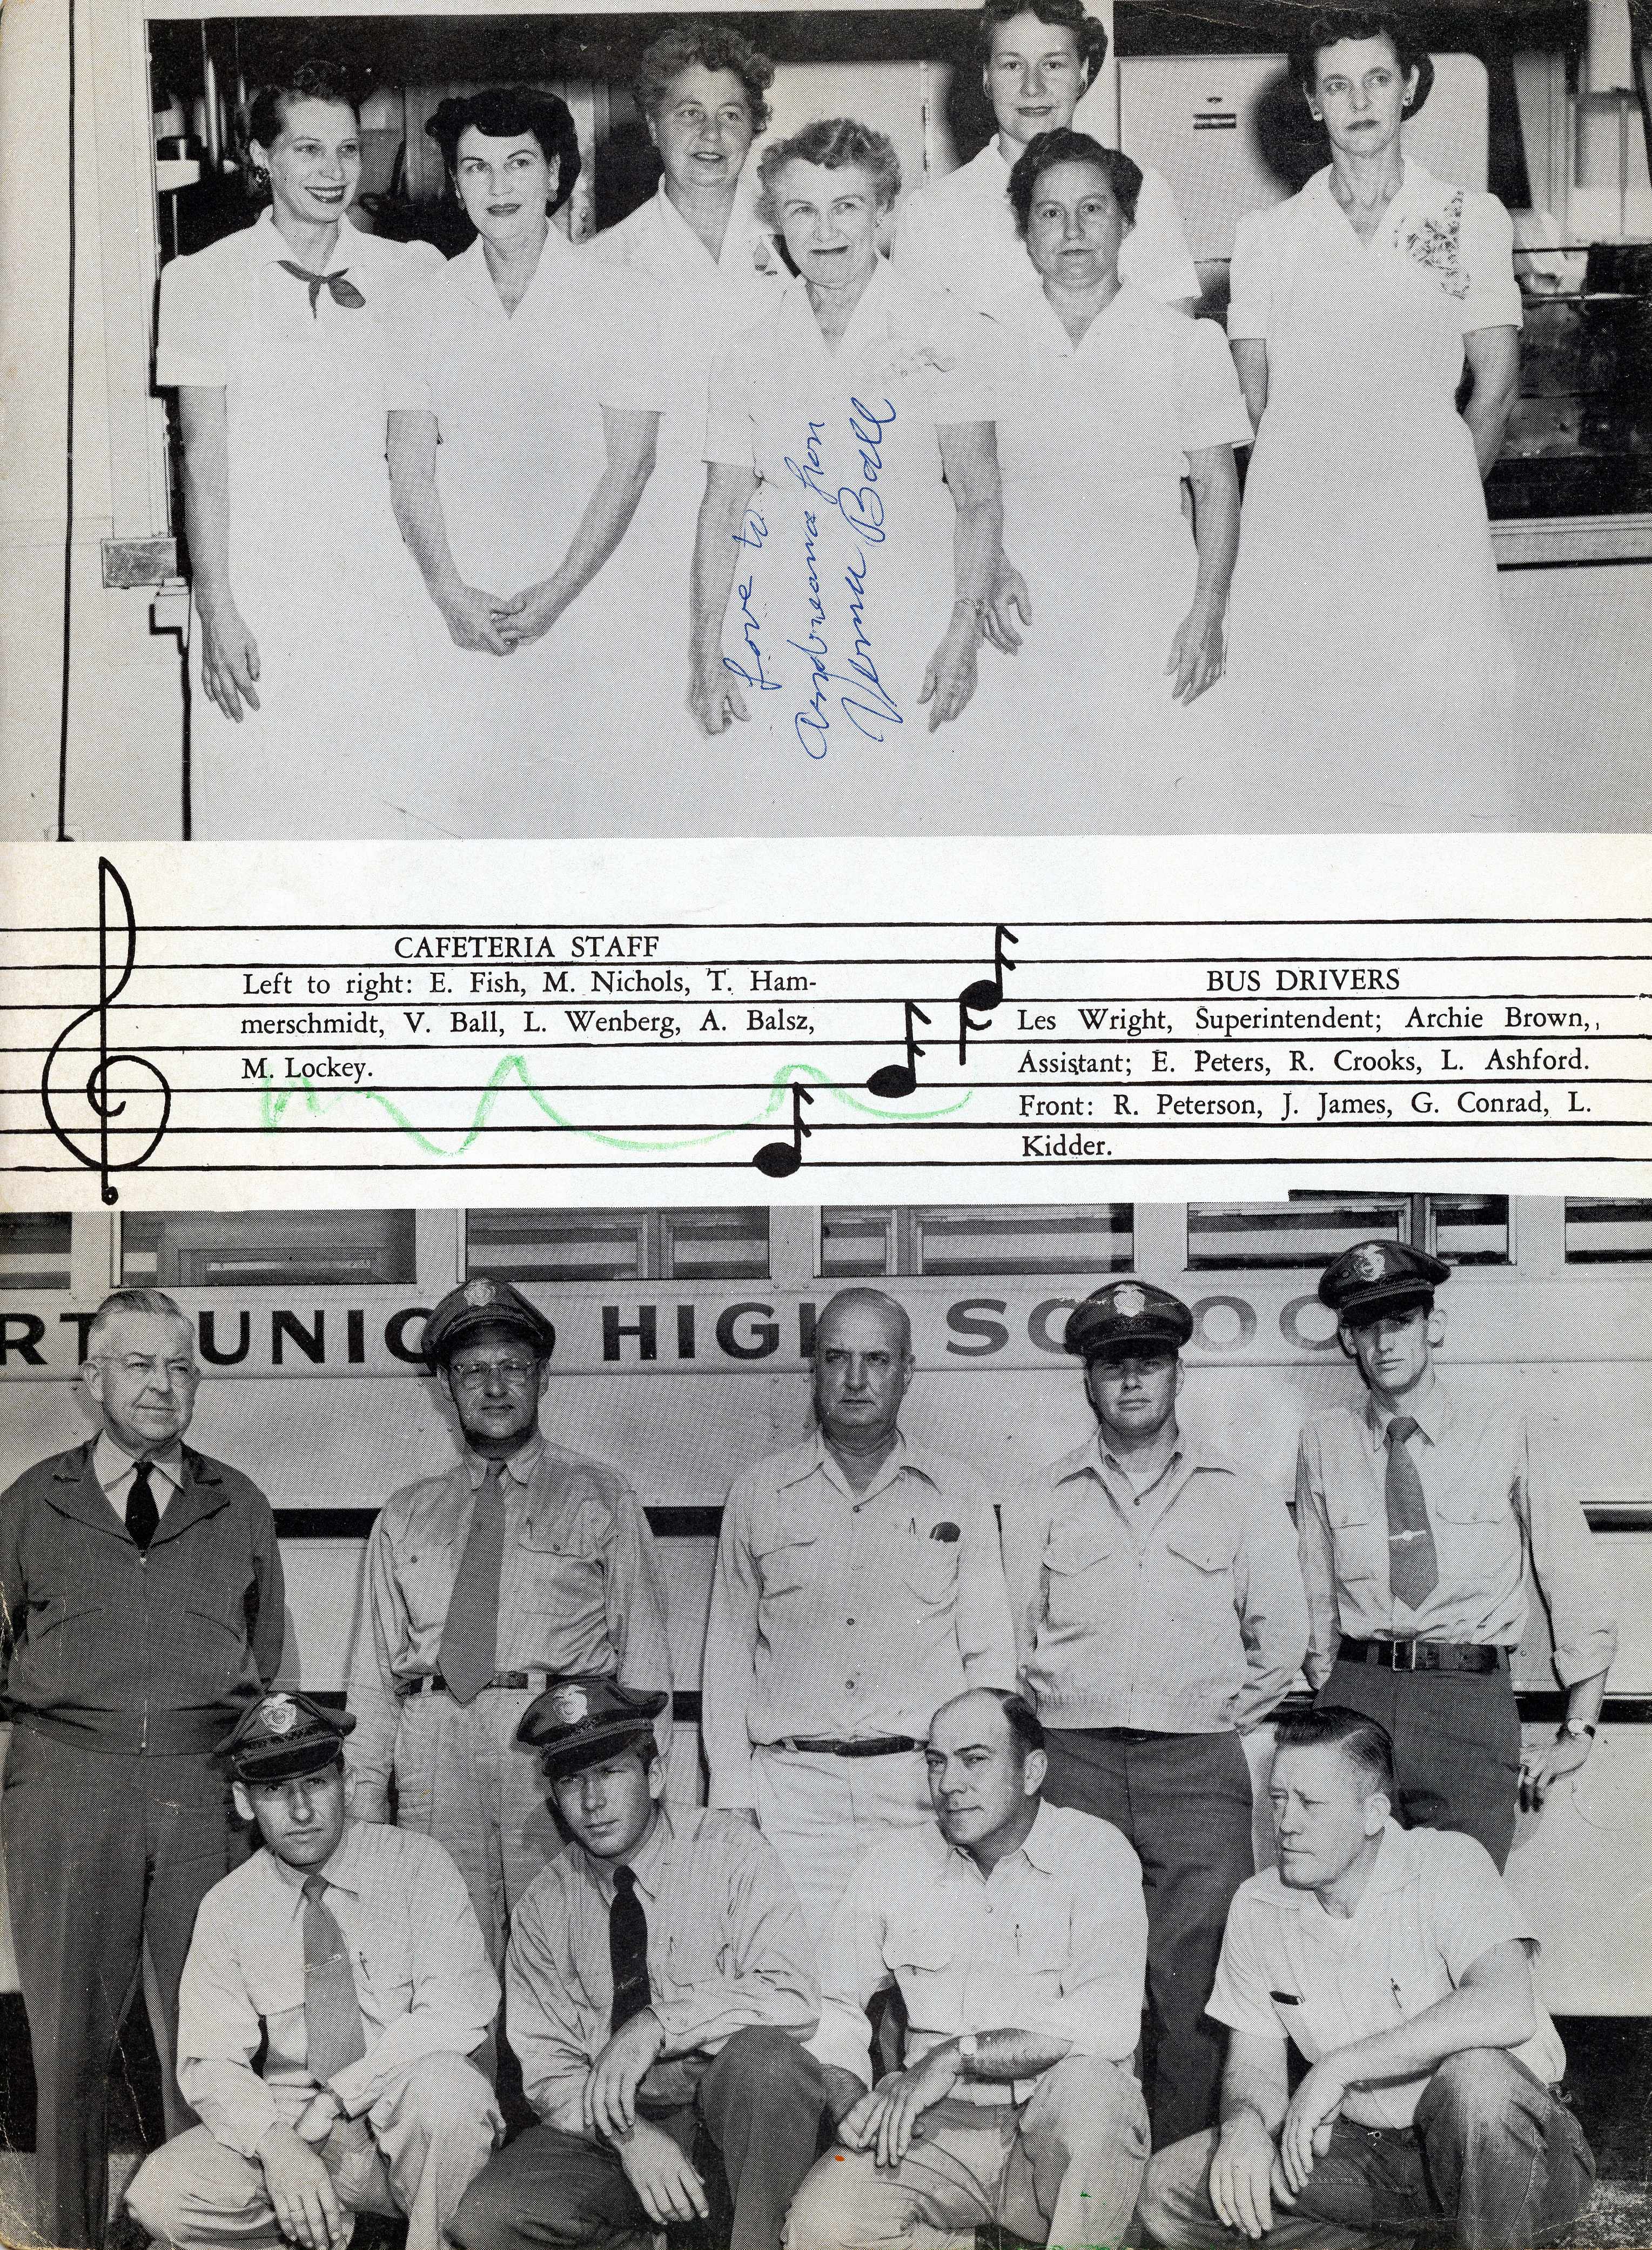 Love to
from
Verna Ball
CAFETERIA STAFF
Left to right: E. Fish, M. Nichols, T. Ham-
merschmidt, V. Ball, L. Wenberg, A. Balsz,
M. Lockey.
BUS DRIVERS
Les Wright, Superintendent; Archie Brown,
Assistant; E. Peters, R. Crooks, L. Ashford.
Front: R. Peterson, J. James, G. Conrad, L.
Kidder.
RT UNIO HIGH SCOO